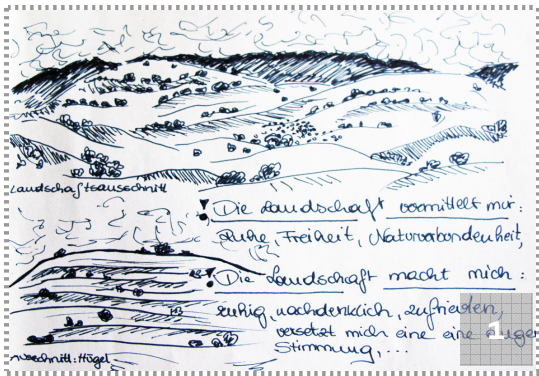 Landschaftsausschnitt
Die Landschaft vermittelt mir:
Ruhe, Freiheit, Naturverbundenheit,
Die Landschaft macht mich:
ruhig, nachdenklich, zufrieden,
versetzt mich eine eine
Stimmung,...
Hügel
1